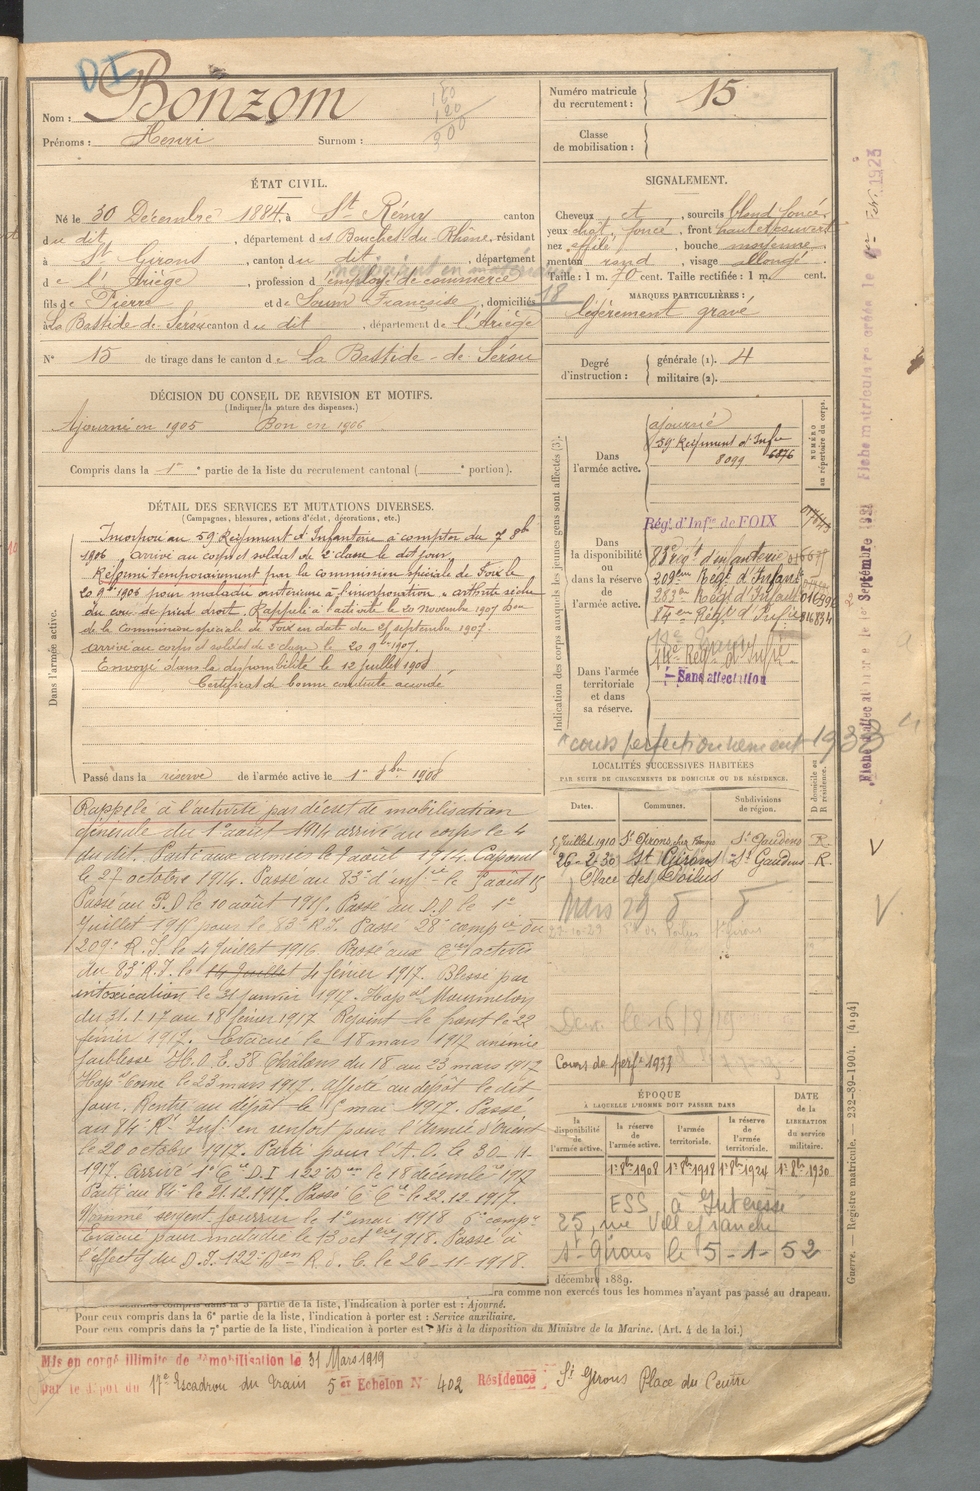 D I
Nom : Bonzom
Prénoms : Henri Surnom :
180
120
300
Numéro matricule du recrutement : 15
Classe de mobilisation :
ÉTAT CIVIL.
Né le 30 Décembre 1884, à St Rémy canton
du dit, département des Bouches-du-Rhône, résidant
à St Girons, canton du dit, département
négociant en
de l'Ariège, profession d'employé de commerce
fils de Pierre et de Soum Françoise, domiciliés
à La Bastide-de-Sérou canton du dit, département de l'Ariège
N° 15 de tirage dans le canton de La Bastide-de-Sérou
SIGNALEMENT.
Cheveux et, sourcils blond foncé
yeux chat. foncé, front haut & ouvert
nez effilé, bouche moyenne
menton rond, visage allongé
Taille : 1 m. 70 cent. Taille rectifiée : 1 m. cent.
18
MARQUES PARTICULIÈRES :
légèrement gravé
Degré d'instruction : générale (1). 4
militaire (2).
DÉCISION DU CONSEIL DE REVISION ET MOTIFS.
(Indiquer la nature des dispenses.)
Ajourné en 1905 Bon en 1906
Compris dans la 1re partie de la liste du recrutement cantonal ( e portion).
DÉTAIL DES SERVICES ET MUTATIONS DIVERSES.
(Campagnes, blessures, actions d'éclat, décorations, etc.)
Dans l'armée active.
Incorporé au 59 Régiment d'Infanterie à compter du 7 8b
1906 arrivé au corps et soldat de 2e classe le dit jour
Réformé temporairement par la commission spéciale de Foix le
20 9b 1906 pour maladie antérieure à l'incorporation « arthrite sèche
du cou de pied droit. Rappelé à l'activité le 20 novembre 1907 don
de la Commission spéciale de Foix en date du 25 septembre 1907.
arrivé au corps et soldat de 2 classe le 20 9bre 1907.
Envoyé dans la disponibilité le 12 juillet 1908
Certificat de bonne conduite accordé
Passé dans la réserve de l'armée active le 1er 8bre 1908
Indication des corps auxquels les jeunes gens sont affectés (3).
NUMÉRO au répertoire du corps.
Dans l'armée active.
ajourné
59e Régiment d'Infie
8099 6876
Dans la disponibilité ou dans la réserve de l'armée active.
Rég. d'Infie de FOIX
83e Régt d'infanterie
209ème Régt d'Infant
283e Régt d'Infant
84eme Régt d'Infie
Dans l'armée territoriale et dans sa réserve.
Régt d'Infie
Sans affectation
cours perfectionnement 1933
Rappelé à l'activité par décret de mobilisation
générale du 1er août 1914 arrivé au corps le 4
du dit. Parti aux armées le 9 août 1914. Caporal
le 27 octobre 1914. Passé au 83e d'infie le 5 août 15
Passé au P.D le 10 août 1915. Passé au D.D le 1er
Juillet 1916 pour le 83e R.I. Passé 28e compie du
209e R.I. le 4 Juillet 1916. Passé aux Cies actives
du 83e R.I. le 14 Juillet 4 février 1917. Blessé par
intoxication le 31 janvier 1917. Hopal Mourmelon
du 31.1.17 au 18 février 1917 Rejoint le front le 22
février 1917. Évacué le 18 mars 1917 anémie
faiblesse H.O.E. 38 Châlons du 18 au 23 mars 1917
Hopal Cosne le 23 mars 1917. Affecté au dépôt le dit
jour. Rentré au dépôt le 5 mai 1917. Passé
au 84e Rt Infie en renfort pour l'Armée d'Orient
le 20 octobre 1917. Parti pour l'A.O. le 30-11-
1917. Arrivé 1e Cie D.I 122e Don le 18 décembre 1917
Parti au 84e le 21.12.1917. Passé 6e Cie le 22.12.1917.
Nommé sergent fourrier le 1er mai 1918 6e compie
Évacué pour maladie le 13 octobre 1918. Passé à
l'effectif du D.I. 122e Don R.d.C. le 26-11-1918.
LOCALITÉS SUCCESSIVES HABITÉES
PAR SUITE DE CHANGEMENTS DE DOMICILE OU DE RÉSIDENCE.
Dates. Communes. Subdivisions de région. D domicile ou R résidence.
5 Juillet 1910 St Girons St Gaudens R.
26-2-30 St Girons St Gaudens R.
Place des Poilus
Mars 29
23-10-29 Pl. des Poilus St Girons
le 16/8/19
Cours de perft 1933
ÉPOQUE
À LAQUELLE L'HOMME DOIT PASSER DANS
la disponibilité de l'armée active. la réserve de l'armée active. l'armée territoriale. la réserve de l'armée territoriale.
DATE de la LIBÉRATION du service militaire.
1er 8bre 1908 1er 8bre 1918 1er 8bre 1924 1er 8bre 1930
ESS à Intéressé
25, rue Villefranche
St-Girons le 5-1-52
décembre 1889.
ra comme non exercés tous les hommes n'ayant pas passé au drapeau.
compris dans la 5e partie de la liste, l'indication à porter est : Ajourné.
Pour ceux compris dans la 6e partie de la liste, l'indication à porter est : Service auxiliaire.
Pour ceux compris dans la 7e partie de la liste, l'indication à porter est : Mis à la disposition du Ministre de la Marine. (Art. 4 de la loi.)
Mis en congé illimité de démobilisation le 31 Mars 1919
par le dépôt du 17e Escadron du Train 5e Echelon N° 402 Résidence St Girons Place du Centre
Guerre. — Registre matricule. — 232-89-1904. [4194]